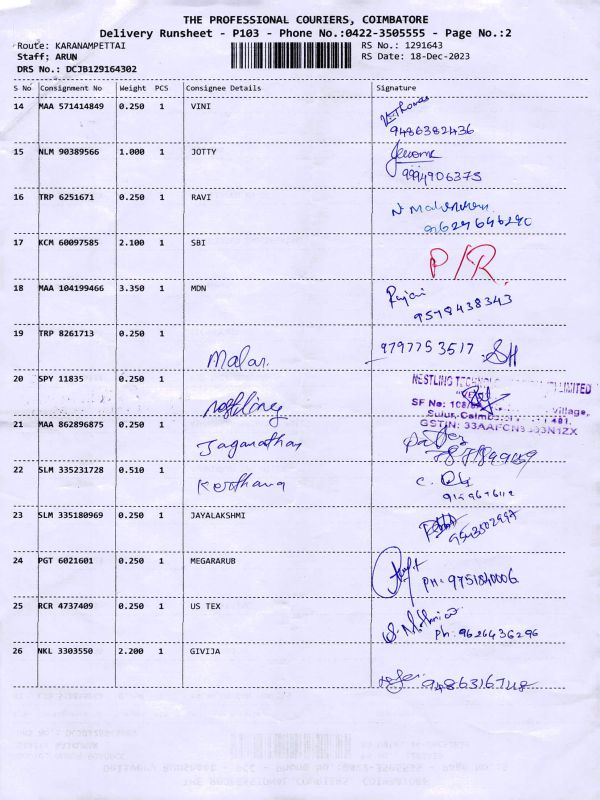 THE PROFESSIONAL COURIERS, COIMBATORE
Delivery Runsheet - P103 - Phone No.:0422-3505555 - Page No.:2
Route: KARANAMPETTAI RS No.: 1291643
Staff: ARUN RS Date: 18-Dec-2023
DRS No.: DCJB129164302
S No Consignment No Weight PCS Consignee Details Signature
14 MAA 571414849 0.250 1 VINI
9486382436
15 NLM 90389566 1.000 1 JOTTY Jerome
9994906375
16 TRP 6251671 0.250 1 RAVI
9629646290
17 KCM 60097585 2.100 1 SBI P/R
18 MAA 104199466 3.350 1 MDN
9578438343
19 TRP 8261713 0.250 1 Malar 9797753517
20 SPY 11835 0.250 1 NESTLING LIMITED
SF No: Village,
Sulur,
GSTIN:
21 MAA 862896875 0.250 1 Jaganathan
22 SLM 335231728 0.510 1 Kerthana
23 SLM 335180969 0.250 1 JAYALAKSHMI
24 PGT 6021601 0.250 1 MEGARARUB
PH: 9751840006
25 RCR 4737409 0.250 1 US TEX
Ph: 9626436296
26 NKL 3303550 2.200 1 GIVIJA